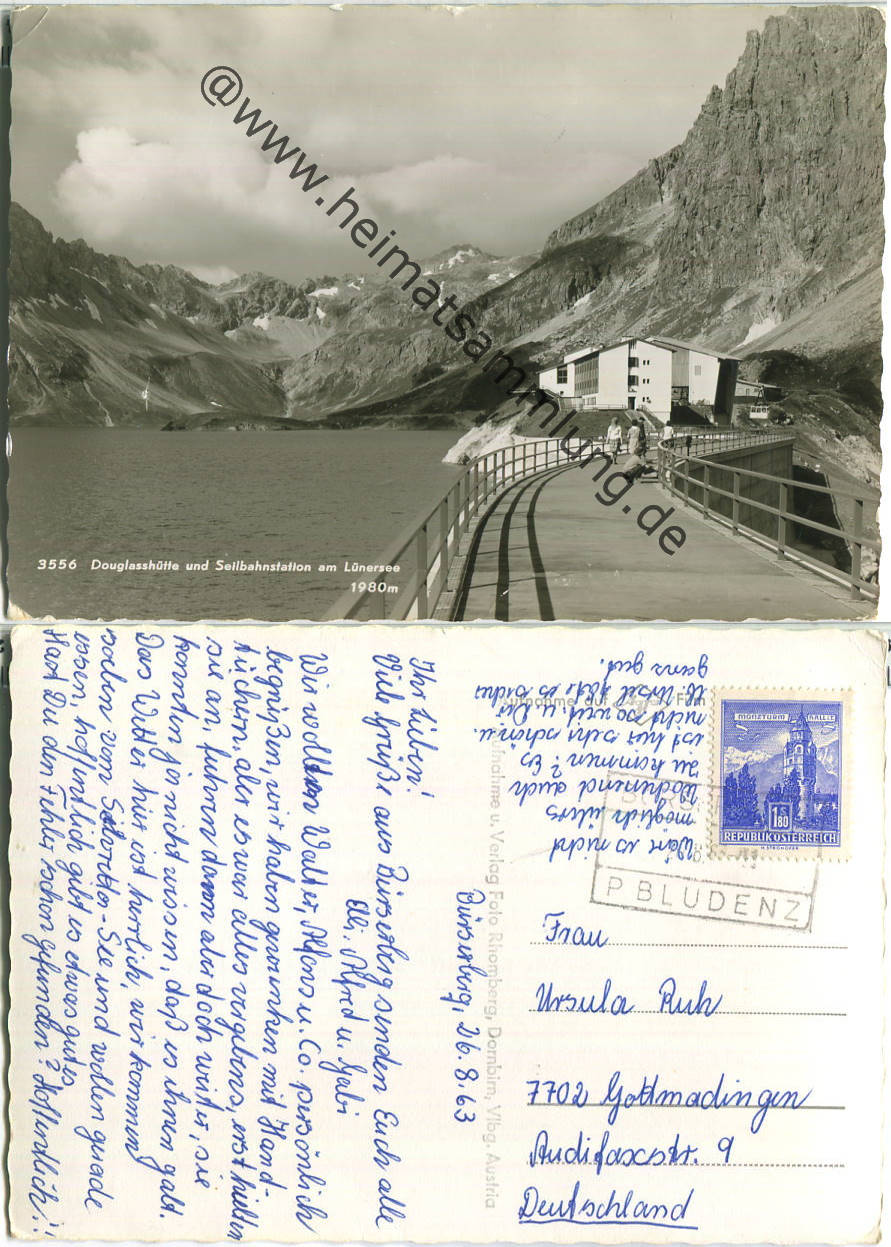 @www.heimatsammlung.de
3556 Douglasshütte und Seilbahnstation am Lünersee
1980m
Bürserberg, 26.8.63
Ihr Lieben!
Viele Grüße aus Bürserberg senden Euch alle
Elli, Alfred u. Gabi
Wir wollten Walter, Alfons u. Co. persönlich
begrüßen, wir haben gewunken mit Hand-
tüchern, aber es war alles vergebens, erst hielten
sie an, fuhren dann aber doch weiter, sie
konnten ja nicht wissen, daß es ihnen galt.
Das Wetter hier ist herrlich, wir kommen
soeben vom Silvretta-See und wollen gerade
essen, hoffentlich gibt es etwas gutes
Hast Du den Fehler schon gefunden? Hoffentlich!!
Wäre es nicht
möglich übers
Wochenend auch
zu kommen? Es
ist hier sehr schön u.
nicht so weit u. Der
Ursel täte es sicher
ganz gut.
Aufnahme auf Film
Aufnahme u. Verlag Foto Rhomberg, Dornbirn, Vlbg. Austria
MÜNZTURM HALL i.T.
1.80
REPUBLIK ÖSTERREICH
P BLUDENZ
Frau
Ursula Ruh
7702 Gottmadingen
Audifaxstr. 9
Deutschland